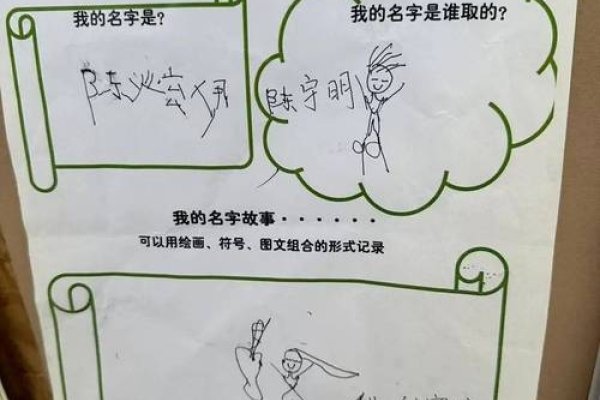 我的名字是?
我的名字是谁取的?
陈
陈宇明
我的名字故事······
可以用绘画、符号、图文组合的形式记录